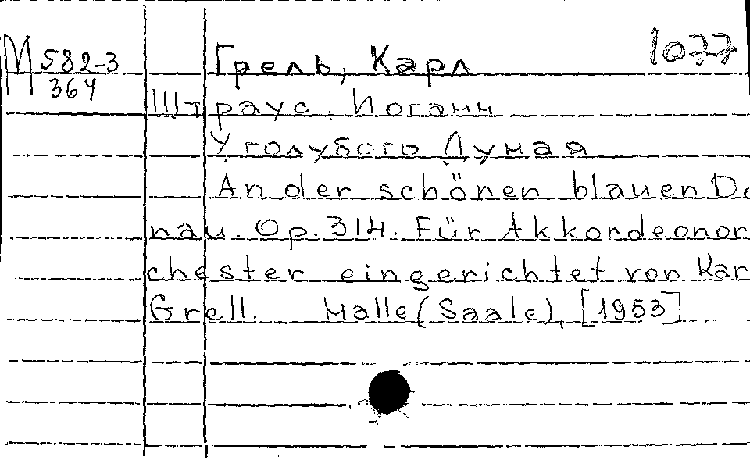 М 582-3
364
Грель, Карл
1077
Штраус, Иоганн
У голубого Дуная
An der schönen blauen Do
nau. Op. 314. Für Akkordeonor
chester eingerichtet von Kar
Grell. Halle (Saale), [1953]